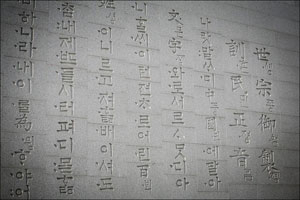 世솅宗종御엉製졩
訓훈民민正졍音ᅙᅳᆷ
나랏말ᄊᆞ미中듕國귁에달아
文문字ᄍᆞᆼ와로서르ᄉᆞᄆᆞᆺ디아
니ᄒᆞᆯᄊᆡ이런젼ᄎᆞ로어린百
이니르고져홇배이셔도
ᄎᆞᆷ내제ᄠᅳ들시러펴디몯
하니라내이ᄅᆞᆯ爲윙ᄒᆞ야어